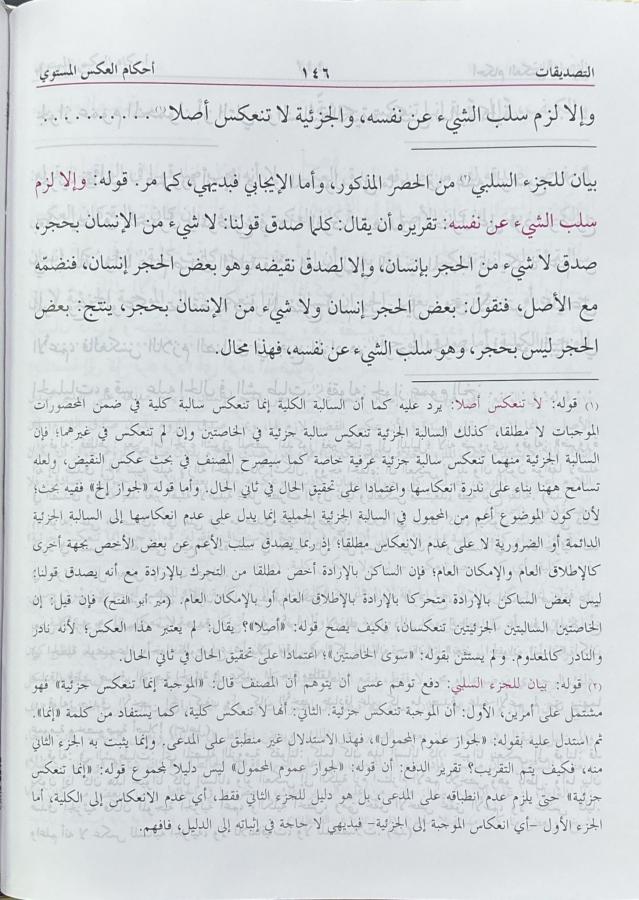 التصديقات ١٤٦ أحكام العكس المستوي
وإلا لزم سلب الشيء عن نفسه، والجزئية لا تنعكس أصلا (١) . . . . . . . . . .
بيان للجزء السلبي (٢) من الحصر المذكور، وأما الإيجابي فبديهي، كما مر. قوله: وإلا لزم
سلب الشيء عن نفسه: تقريره أن يقال: كلما صدق قولنا: لا شيء من الإنسان بحجر،
صدق لا شيء من الحجر بإنسان، وإلا لصدق نقيضه وهو بعض الحجر إنسان، فنضمّه
مع الأصل، فنقول: بعض الحجر إنسان ولا شيء من الإنسان بحجر، ينتج: بعض
الحجر ليس بحجر، وهو سلب الشيء عن نفسه، فهذا محال.
(١) قوله: لا تنعكس أصلا: يرد عليه كما أن السالبة الكلية إنما تنعكس سالبة كلية في ضمن المحصورات
الموجبات لا مطلقا، كذلك السالبة الجزئية تنعكس سالبة جزئية في الخاصتين وإن لم تنعكس في غيرهما؛ فإن
السالبة الجزئية منهما تنعكس سالبة جزئية عرفية خاصة كما سيصرح المصنف في بحث عكس النقيض، ولعله
تسامح ههنا بناء على ندرة انعكاسها واعتمادا على تحقيق الحال في ثاني الحال. وأما قوله «لجواز إلخ» ففيه بحث؛
لأن كون الموضوع أعم من المحمول في السالبة الجزئية الحملية إنما يدل على عدم انعكاسها إلى السالبة الجزئية
الدائمة أو الضرورية لا على عدم الانعكاس مطلقا؛ إذ ربما يصدق سلب الأعم عن بعض الأخص بجهة أخرى
كالإطلاق العام والإمكان العام؛ فإن الساكن بالإرادة أخص مطلقا من التحرك بالإرادة مع أنه يصدق قولنا:
ليس بعض الساكن بالإرادة متحركا بالإرادة بالإطلاق العام أو بالإمكان العام. (مير أبو الفتح) فإن قيل: إن
الخاصتين السالبتين الجزئيتين تنعكسان، فكيف يصح قوله: «أصلا»؟ يقال: لم يعتبر هذا العكس؛ لأنه نادر
والنادر كالمعدوم. ولم يستثن بقوله: «سوى الخاصتين»؛ اعتمادا على تحقيق الحال في ثاني الحال.
(٢) قوله: بيان للجزء السلبي: دفع توهم عسى أن يتوهم أن المصنف قال: «الموجبة إنما تنعكس جزئية» فهو
مشتمل على أمرين، الأول: أن الموجبة تنعكس جزئية. الثاني: أنها لا تنعكس كلية، كما يستفاد من كلمة «إنما».
ثم استدل عليه بقوله: «لجواز عموم المحمول»، فهذا الاستدلال غير منطبق على المدعى. وإنما يثبت به الجزء الثاني
منه، فكيف يتم التقريب؟ تقرير الدفع: أن قوله: «لجواز عموم المحمول» ليس دليلا لمجموع قوله: «إنما تنعكس
جزئية» حتى يلزم عدم انطباقه على المدعى، بل هو دليل للجزء الثاني فقط، أي عدم الانعكاس إلى الكلية، أما
الجزء الأول -أي انعكاس الموجبة إلى الجزئية- فبديهي لا حاجة في إثباته إلى الدليل، فافهم.